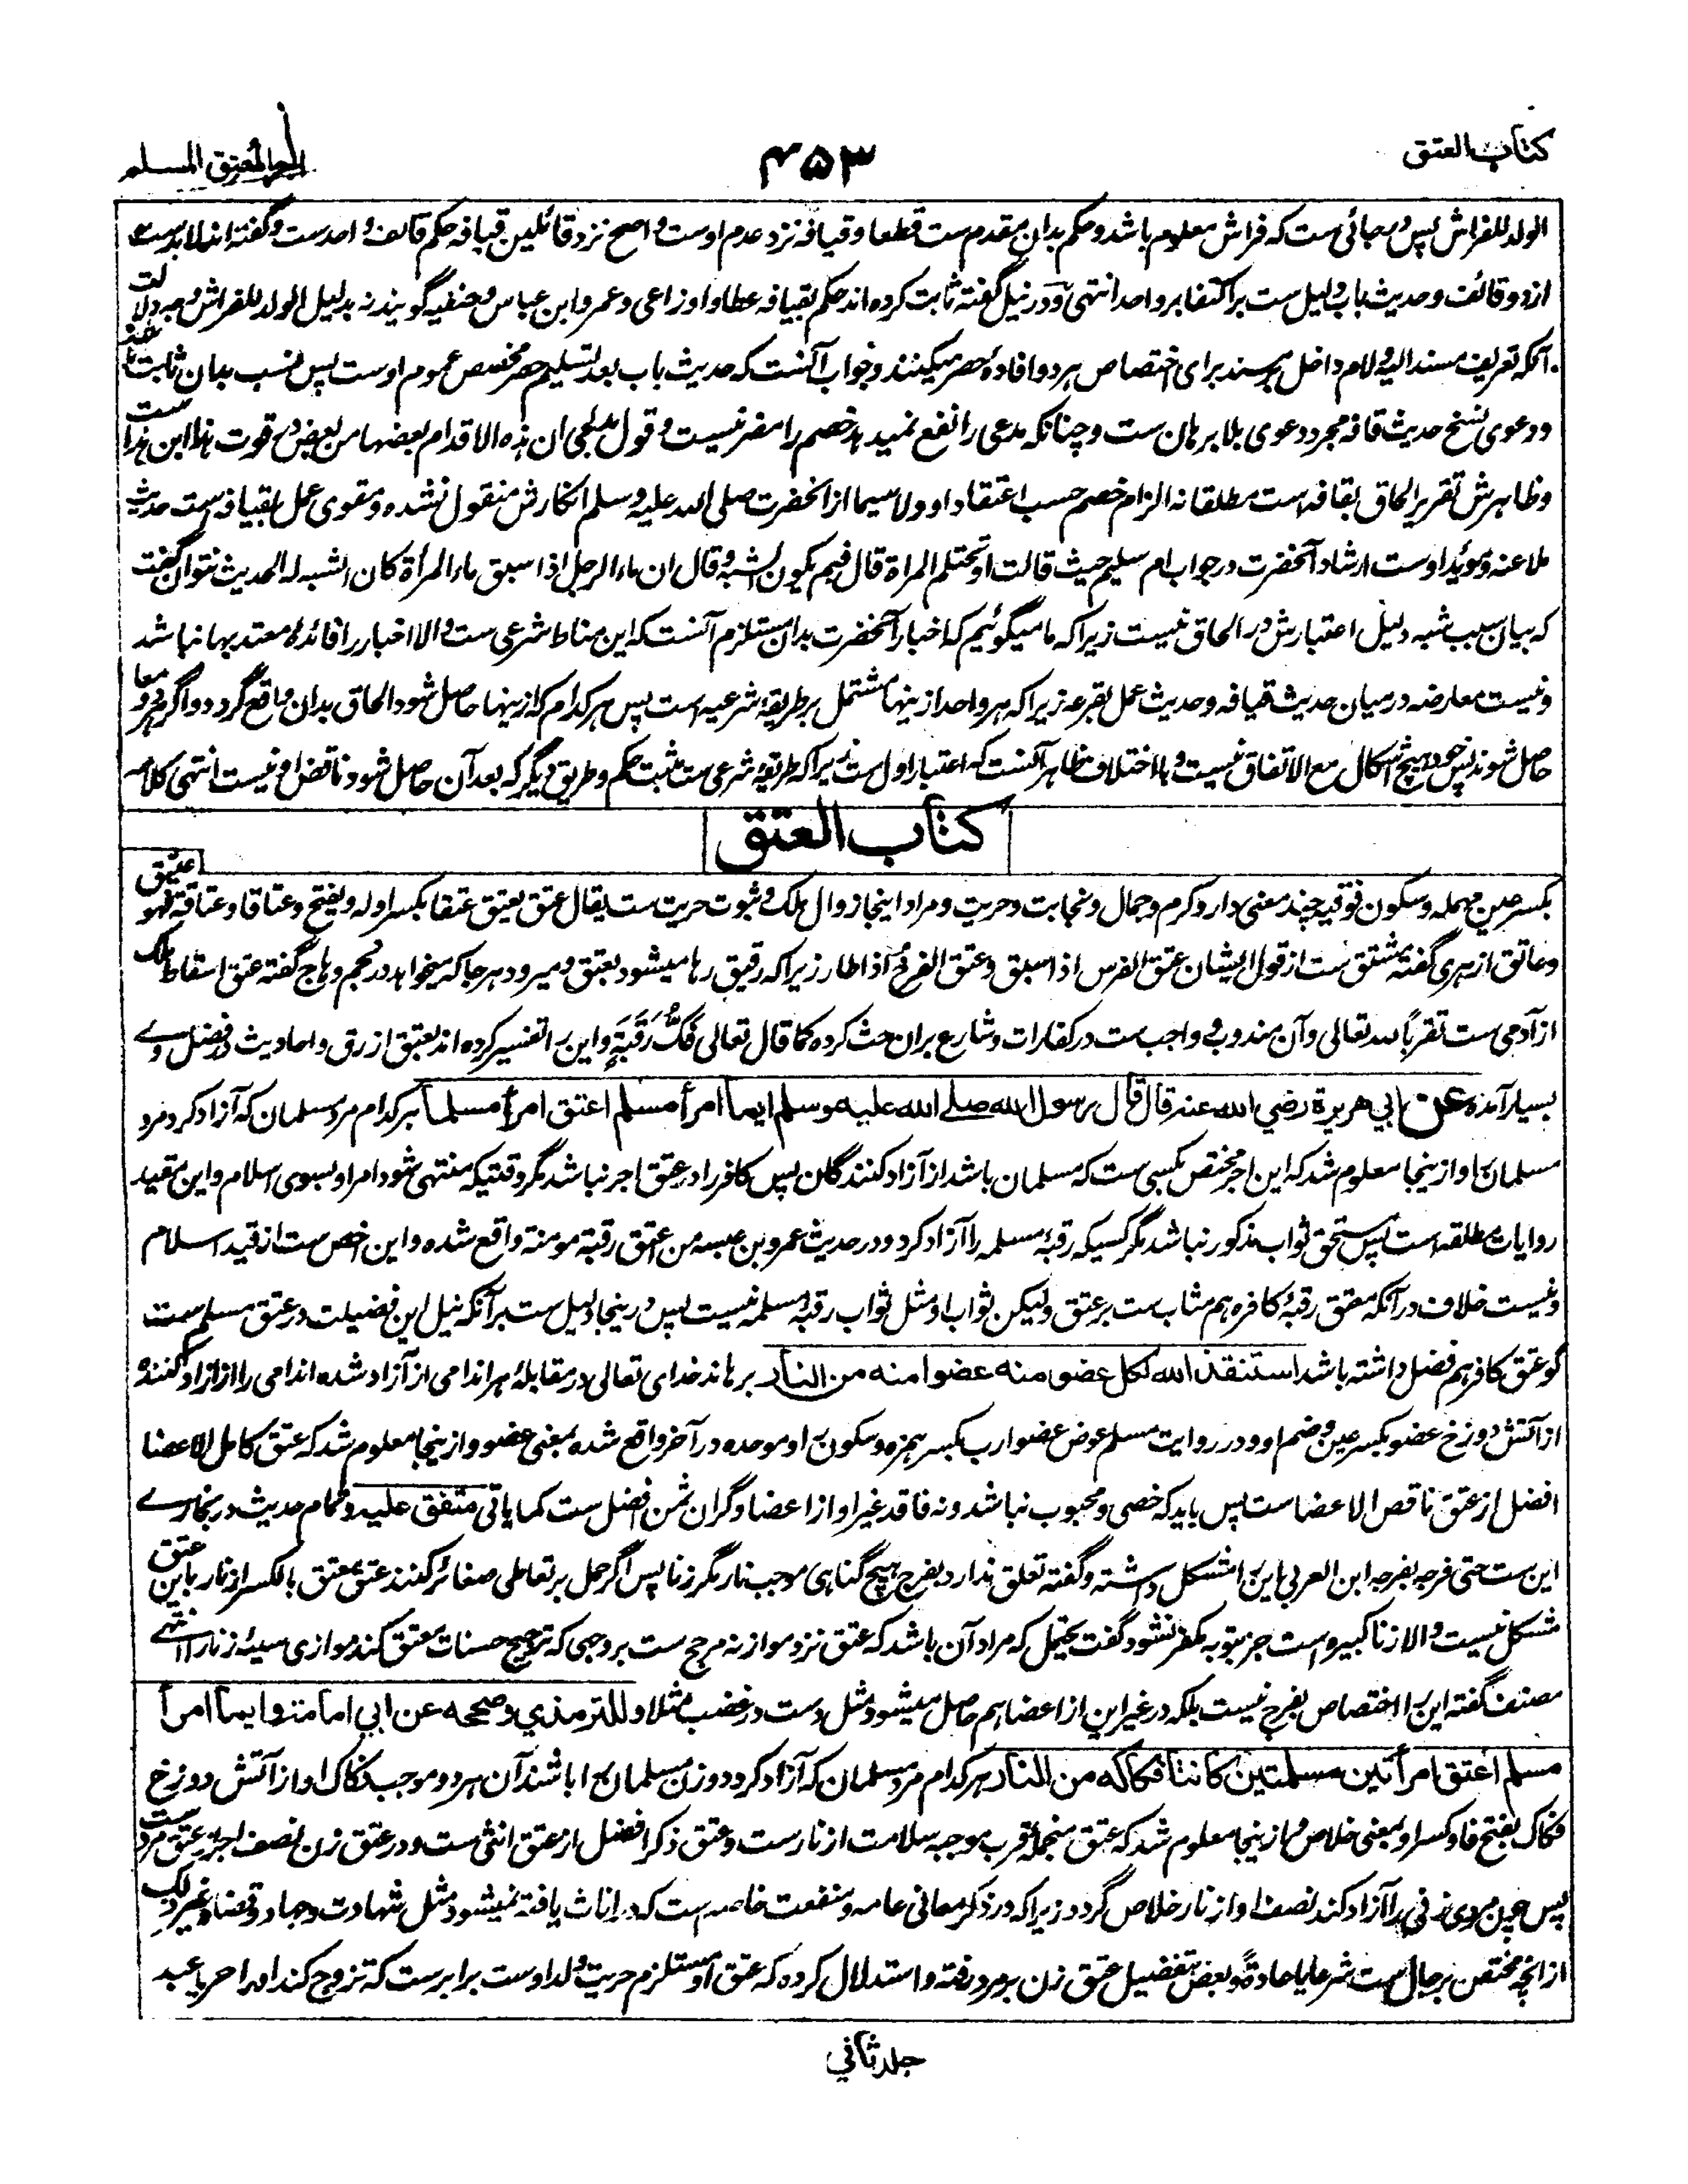 کتاب العتق
۴۵۳
اجر المعتق المسلم
الولد للفراش پس در جائی ست که فراش معلوم باشد و حکم بدان مقدم ست قطعا و قیافه نزد عدم اوست و اصح نزد قائلین قیافه حکم قائف واحد ست و گفته اند لابد ست
از دو قائف و حدیث باب دلیل ست بر اکتفا بر واحد انتهی و در نیل گفته ثابت کرده اند حکم بقیافه عطا و اوزاعی و عمر و ابن عباس و حنفیه گویند نه بدلیل الولد للفراش و وجه دلالت
آنکه تعریف مسند الیه و لام داخل بر مسند برای اختصاص هر دو افاده حصر میکنند و جواب آنست که حدیث باب بعد تسلیم حصر مخصص عموم اوست پس نسب بدان ثابت باشد
و دعوی نسخ حدیث قافه مجرد دعوی بلا برهان ست و چنانکه مدعی را نفع نمیدهد خصم را مضر نیست و قول مدلجی ان هذه الاقدام بعضها من بعض در قوت هذا ابن هذا ست
و ظاهرش تقریر الحاق بقافه است مطلقا نه الزام خصم حسب اعتقاد او و لا سیما از آنحضرت صلی الله علیه و سلم انکارش منقول نشده و مقوی عمل بقیافه ست حدیث
ملاعنه و موید اوست ارشاد آنحضرت در جواب ام سلیم حیث قالت او تحتلم المراة قال فبم یکون الشبه و قال ان ماء الرجل اذا سبق ماء المرأة کان الشبه له الحدیث نتوان گفت
که بیان سبب شبه دلیل اعتبارش در الحاق نیست زیرا که ما میگوئیم که اخبار آنحضرت بدان مستلزم آنست که این مناط شرعی ست والا اخبار را فائده معتد بها نباشد
و نیست معارضه در میان حدیث قیافه و حدیث عمل بقرعه زیرا که هر واحد ازینها مشتمل بر طریقه شرعیه است پس هر کدام که ازینها حاصل شود الحاق بدان واقع گردد و اگر هر دو معا
حاصل شوند پس خود هیچ اشکال مع الاتفاق نیست و با اختلاف ظاهر آنست که اعتبار اول ست زیرا که طریقه شرعی ست مثبت حکم و طریق دیگر که بعد آن حاصل شود ناقض او نیست انتهی کلامه
کتاب العتق
بکسر عین مهمله و سکون فوقیه چند معنی دارد کرم و جمال و نجابت و حریت و مراد اینجا زوال ملک و ثبوت حریت ست یقال عتق یعتق عتقا بکسر اوله و یفتح و عتاقا و عتاقة فهو عتیق
و عاتق ازهری گفته مشتق ست از قول ایشان عتق الفرس اذا سبق و عتق الفرخ اذا طار زیرا که رقیق رها میشود بعتق و میرود هر جا که میخواهد در نجم وهاج گفته عتق اسقاط ملک
از آدمی ست تقربا لله تعالی و آن مندوب و واجب ست در کفارات و شارع بران حث کرده کما قال تعالی فَكُّ رَقَبَةٍ و این را تفسیر کرده اند بعتق از رق و احادیث در فضل وے
بسیار آمده عن ابي هريرة رضي الله عنه قال قال رسول الله صلے الله عليه وسلم ايما امرأ مسلم اعتق امرأ مسلما هر کدام مرد مسلمان که آزاد کرد مرد
مسلمان را و ازینجا معلوم شد که این اجر مختص بکسی ست که مسلمان باشد از آزاد کنندگان پس کافر را در عتق اجر نباشد مگر وقتیکه منتهی شود امر او بسوی اسلام و این مقید
روایات مطلقه است پس مستحق ثواب مذکور نباشد مگر کسیکه رقبه مسلمه را آزاد کرد و در حدیث عمرو بن عبسه من اعتق رقبة مومنة واقع شده و این اخص ست از قید اسلام
و نیست خلاف در آنکه معتق رقبه کافره هم مثاب ست بر عتق ولیکن ثواب او مثل ثواب رقبه مسلمه نیست پس درینجا دلیل ست بر آنکه نیل این فضیلت در عتق مسلم ست
گو عتق کافر هم فضل داشته باشد استنقذ الله لكل عضو منه عضوا منه من النار برهاند خدای تعالی در مقابله هر اندامی از آزاد شده اندامی را از آزاد کننده
از آتش دوزخ عضو بکسر عین و ضم او و در روایت مسلم عوض عضو ارب بکسر همزه و سکون را و موحده در آخر واقع شده بمعنی عضو و ازینجا معلوم شد که عتق کامل الاعضا
افضل از عتق ناقص الاعضا ست پس باید که خصی و مجبوب نباشد و نه فاقد غیر او از اعضا و گران ثمن افضل ست کما یاتی متفق عليه و تمام حدیث در بخارے
این ست حتی فرجه بفرجه ابن العربی این را مشکل داشته و گفته تعلق ندارد بفرج هیچ گناهی موجب نار مگر زنا پس اگر حمل بر تعاطی صغائر کنند عتق معتق بالکسر از نار باین عتق
مشکل نیست والا زنا کبیره است جز بتوبه مکفر نشود گفت یحتمل که مراد آن باشد که عتق نزد موازنه مرجح ست بروجهی که ترجیح حسنات معتق کند موازی سیئه زنا را انتهے
مصنف گفته این را اختصاص بفرج نیست بلکه در غیر این از اعضا هم حاصل میشود مثل دست در غضب مثلا و للترمذي وصححه عن ابي امامة وايما امرأ
مسلم اعتق امرأتين مسلمتين كانتا فكاكه من النار هر کدام مرد مسلمان که آزاد کرد دو زن مسلمان را باشند آن هر دو موجب فکاک او از آتش دوزخ
فکاک بفتح فا و کسر او بمعنی خلاص و ازینجا معلوم شد که عتق منجمله قرب موجبه سلامت از نار ست و عتق ذکر افضل از عتق انثی ست و در عتق زن نصف اجر عتق مرد ست
پس چون مردی زنی را آزاد کند نصف او از نار خلاص گردد زیرا که در ذکر معانی عامه و منفعت خاصه است که در اناث یافته نمیشود مثل شهادت و جهاد و قضا و غیر ذلک
از انچه مختص برجال ست شرعا یا عادة و بعض بتفضیل عتق زن بر مرد رفته و استدلال کرده که عتق او مستلزم حریت ولد اوست برابرست که تزوج کند او را حر یا عبد
جلد ثانی